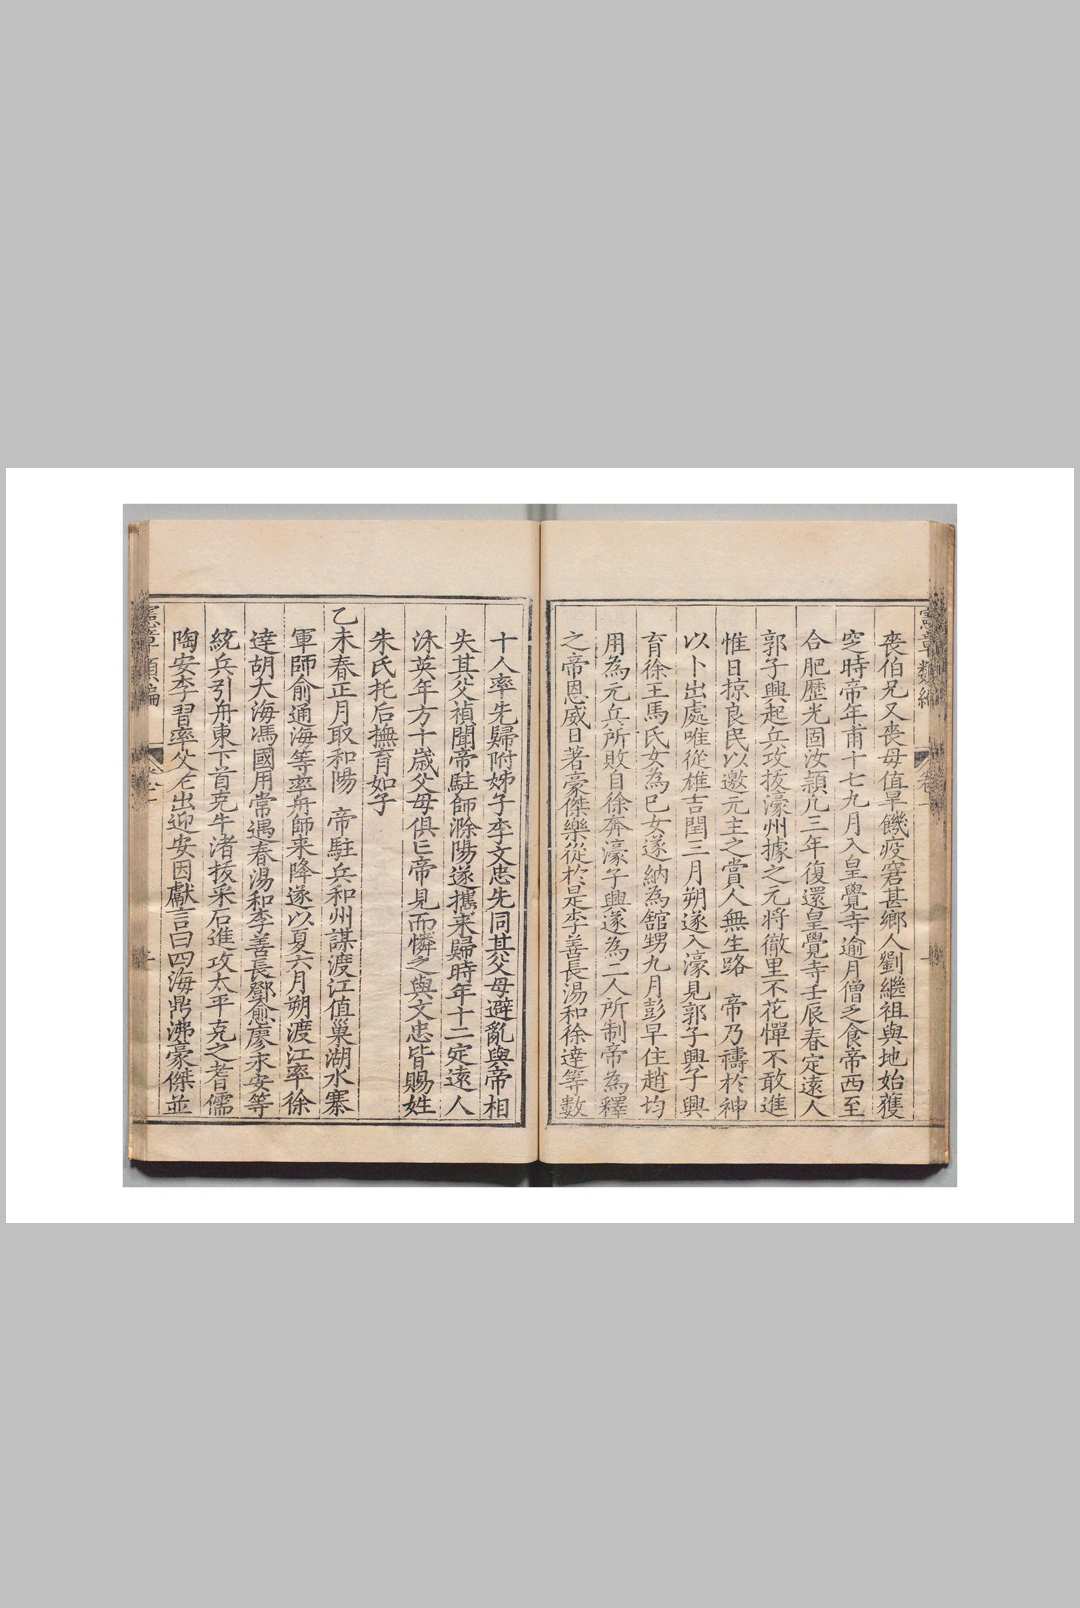 憲章類編
卷一
喪伯兄又喪母值旱饑疫窘甚鄉人劉繼祖與地始獲
窆時帝年甫十七九月入皇覺寺逾月僧乏食帝西至
合肥歷光固汝潁凢三年復還皇覺寺壬辰春定遠人
郭子興起兵攻拔濠州據之元將徹里不花憚不敢進
惟日掠良民以邀元主之賞人無生路 帝乃禱於神
以卜出處唯從雄吉閏三月朔遂入濠見郭子興子興
育徐王馬氏女為巳女遂納為舘甥九月彭早住趙均
用為元兵所敗自徐奔濠子興遂為二人所制帝為釋
之帝恩威日著豪傑樂從於是李善長湯和徐達等數
十人率先歸附姊子李文忠先同其父母避亂與帝相
失其父禎聞帝駐師滁陽遂攜来歸時年十二定遠人
沐英年方十歲父母俱亡帝見而憐之與文忠皆賜姓
朱氏托后撫育如子
乙未春正月取和陽 帝駐兵和州謀渡江值巢湖水寨
軍師俞通海等率舟師来降遂以夏六月朔渡江率徐
達胡大海馮國用常遇春湯和李善長鄧愈廖永安等
統兵引舟東下首克牛渚拔采石進攻太平克之耆儒
陶安李習率父老出迎安因獻言曰四海鼎沸豪傑並
憲章類編
卷一
十